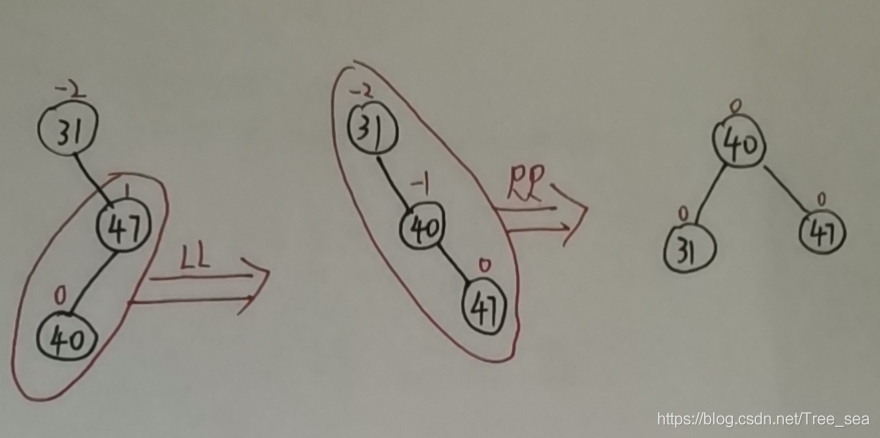 -2
31
1
47
0
40
LL
-2
31
-1
40
0
47
RR
0
40
0
31
0
47
https://blog.csdn.net/Tree_sea